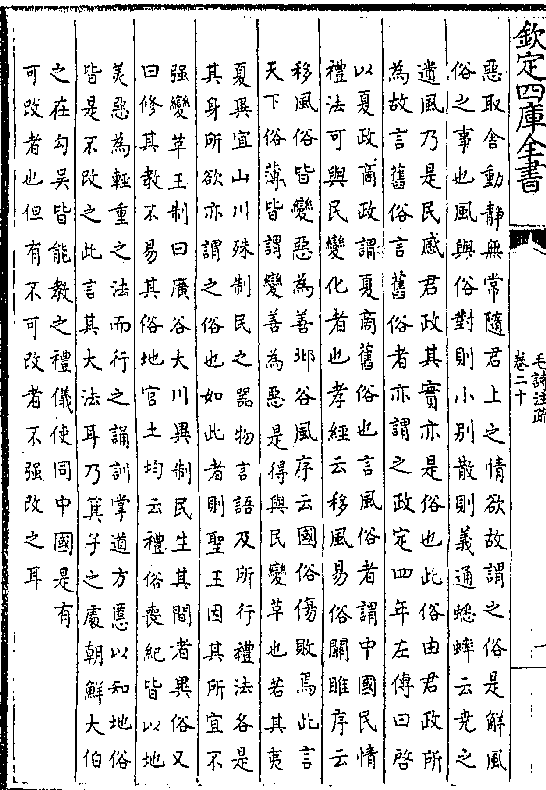 欽定四庫全書
毛詩注疏
卷二十
一
惡取舍動靜無常隨君上之情欲故謂之俗是解風
俗之事也風與俗對則小別散則義通蟋蟀云堯之
遺風乃是民感君政其實亦是俗也此俗由君政所
為故言舊俗言舊俗者亦謂之政定四年左傳曰啓
以夏政商政謂夏商舊俗也言風俗者謂中國民情
禮法可與民變化者也孝經云移風易俗關雎序云
移風俗皆變惡為善邶谷風序云國俗傷敗焉此言
天下俗薄皆謂變善為惡是得與民變革也若其夷
夏異宜山川殊制民之器物言語及所行禮法各是
其身所欲亦謂之俗也如此者則聖王因其所宜不
强變革王制曰廣谷大川異制民生其間者異俗又
曰修其教不易其俗地官土均云禮俗喪紀皆以地
美惡為輕重之法而行之誦訓掌道方慝以知地俗
皆是不改之此言其大法耳乃箕子之處朝鮮大伯
之在勾吳皆能教之禮儀使同中國是有
可改者也但有不可改者不强改之耳